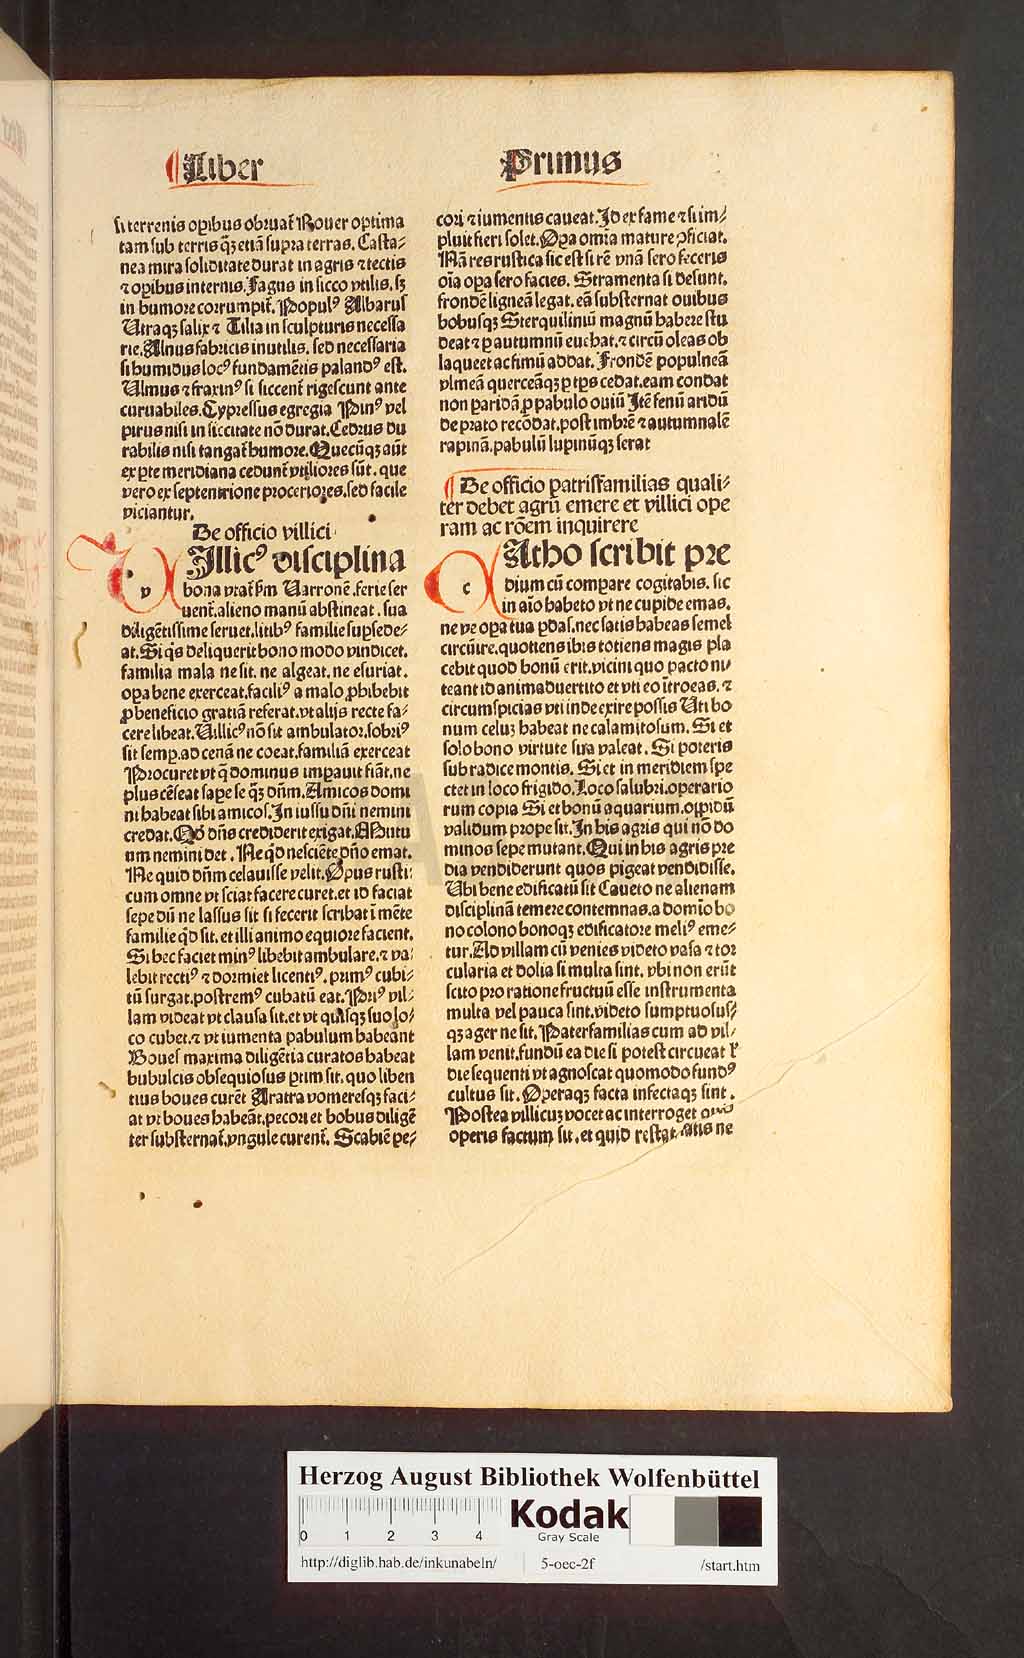 Liber
Primus
si terrenis opibus obruat᷑ Rouer optima
tam sub terris qꝫ etiā supra terras. Casta-
nea mira soliditate durat in agris ⁊ tectis
⁊ opibus internis. Fagus in sicco vtilis. sꝫ
in humore corrumpit᷑. Populꝰ Albarus
Utraqꝫ salix ⁊ Tilia in sculpturis necessa
rie. Alnus fabricis inutilis. sed necessaria
si humidus locꝰ fundamētis palandꝰ est.
Ulmus ⁊ fraxinꝰ si siccent᷑ rigescunt ante
curuabiles. Cypressus egregia Pinꝰ vel
pirus nisi in siccitate nō durat. Cedrus du
rabilis nisi tangat᷑ humore. Quecūqꝫ aūt
ex ꝑte meridiana cedunt᷑ vtiliores sūt. que
vero ex septentrione proceriores. sed facile
viciantur.
De officio villici
v Jllicꝰ disciplina
bona vtat᷑ ẜm Uarronē. ferie ser
uent᷑. alieno manū abstineat. sua
diligētissime seruet. litibꝰ familie suꝑsede-
at. Si q̇s deliquerit bono modo vindicet.
familia mala ne sit. ne algeat. ne esuriat.
oꝑa bene exerceat. faciliꝰ a malo ꝓhibebit
ꝓ beneficio gratiā referat. vt alijs recte fa-
cere libeat. Uillicꝰ nō sit ambulator. sobriꝰ
sit semꝑ. ad cenā ne coeat. familiā exerceat
Procuret vt q̄ dominus imꝑauit fiāt. ne
plus cēseat saꝑe se qꝫ dn̄m. Amicos domi
ni habeat sibi amicos. Jn iussu dn̄i nemini
credat. Qd̄ dn̄s crediderit exigat. Mutu
um nemini det. Ne qd̄ nesciēte dn̄o emat.
Ne quid dn̄m celauisse velit. Opus rusti-
cum omne vt sciat facere curet. et id faciat
sepe dū ne lassus sit si fecerit scribat ī mēte
familie qd̄ sit. et illi animo equiore facient.
Si hec faciet minꝰ libebit ambulare. ⁊ va-
lebit rectiꝰ ⁊ dormiet licentiꝰ. primꝰ cubi-
tū surgat. postremꝰ cubatū eat. Priꝰ vil-
lam videat vt clausa sit. et vt quisqꝫ suo lo-
co cubet. ⁊ vt iumenta pabulum habeant
Boues maxima diligētia curatos habeat
bubulcis obsequiosus ꝑtim sit. quo liben
tius boues curēt Aratra vomeresqꝫ faci-
at vt boues habeāt. pecori et bobus diligē
ter substernat᷑. vngule curent᷑. Scabiē pe-
cori ⁊ iumentis caueat. Jd ex fame ⁊ si im-
pluit fieri solet. Oꝑa omīa mature ꝑficiat.
Nā res rustica sic est si rē vnā sero feceris
oīa oꝑa sero facies. Stramenta si desunt.
frondē ligneā legat. eā substernat ouibus
bobusqꝫ Sterquiliniū magnū habere stu
deat ⁊ ꝑ autumnū euehat. ⁊ circū oleas ob
laqueet ac fimū addat. Frondē populneā
vlmeā querceāqꝫ ꝑ tꝑs cedat. eam condat
non paridā ꝓ pabulo ouiū Jtē fenū aridū
de prato recōdat. post imbrē ⁊ autumnalē
rapinā. pabulū lupinūqꝫ serat
De officio patrisfamilias quali-
ter debet agrū emere et villici ope
ram ac rōem inquirere
c Atho scribit pre
dium cū compare cogitabis. sic
in aīo habeto vt ne cupide emas.
ne ve oꝑa tua ꝑdas. nec satis habeas semel
circūire. quotiens ibis totiens magis pla
cebit quod bonū erit. vicini quo pacto ni-
teant id animaduertito et vti eo ītroeas. ⁊
circumspicias vti inde exire possis Uti bo
num celuꝫ habeat ne calamitosum. Si et
solo bono virtute sua valeat. Si poteris
sub radice montis. Si et in meridiem spe
ctet in loco frigido. Loco salubri. operario
rum copia Si et bonū aquarium. oppidū
validum prope sit. Jn his agris qui nō do
minos sepe mutant. Qui in his agris pre
dia vendiderunt quos pigeat vendidisse.
Ubi bene edificatū sit Caueto ne alienam
disciplinā temere contemnas. a domīo bo
no colono bonoqꝫ edificatore meliꝰ eme-
tur. Ad villam cū venies videto vasa ⁊ tor
cularia et dolia si multa sint. vbi non erūt
scito pro ratione fructuū esse instrumenta
multa vel pauca sint. videto sumptuosus-
qꝫ ager ne sit. Paterfamilias cum ad vil-
lam venit. fundū ea die si potest circueat ł
die sequenti vt agnoscat quomodo fundꝰ
cultus sit. Operaqꝫ facta infectaqꝫ sint.
Postea villicuꝫ vocet ac interroget quid
operis factum sit. et quid restat. satis ne
Herzog August Bibliothek Wolfenbüttel
0 1 2 3 4
Kodak
Gray Scale
http://diglib.hab.de/inkunabeln/
5-oec-2f
/start.htm